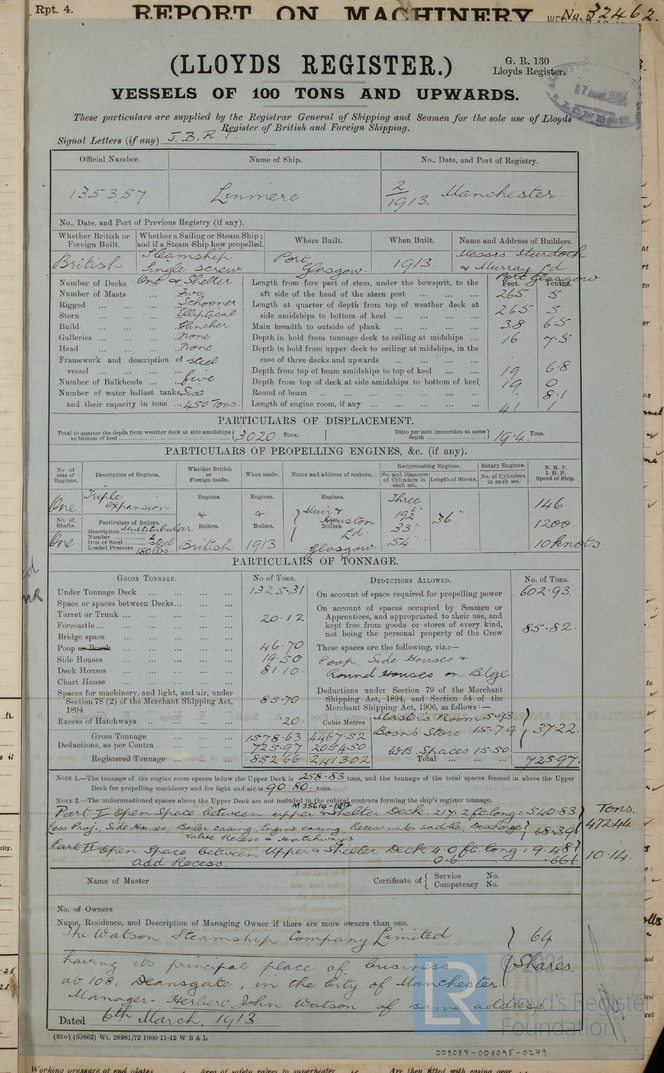 Rpt. 4. REPORT ON MACHINERY No. 32462.
(LLOYDS REGISTER.) G. R. 130
Lloyds Register.
VESSELS OF 100 TONS AND UPWARDS.
These particulars are supplied by the Registrar General of Shipping and Seamen for the sole use of Lloyds
Register of British and Foreign Shipping.
Signal Letters (if any) J.B.R.
Official Number. Name of Ship. No., Date, and Port of Registry.
135357 Linmere 2/1913 Manchester
No., Date, and Port of Previous Registry (if any).
Whether British or Foreign Built. Whether a Sailing or Steam Ship; and if a Steam Ship how propelled. Where Built. When Built. Name and Address of Builders.
British Steamship Single Screw Port Glasgow. 1913 Messrs. Murdoch & Murray Ld Port Glasgow
Feet. Tenths.
Number of Decks One & Shelter Length from fore part of stem, under the bowsprit, to the
Number of Masts ... Two aft side of the head of the stern post 265 5
Rigged ... Schooner Length at quarter of depth from top of weather deck at
Stern ... Elliptical side amidships to bottom of keel 265 5
Build ... Clencher Main breadth to outside of plank 38 6.5
Galleries ... None Depth in hold from tonnage deck to ceiling at midships ... 16 7.5
Head ... None Depth in hold from upper deck to ceiling at midships, in the
Framework and description of steel case of three decks and upwards
vessel ... Depth from top of beam amidships to top of keel 19 6.8
Number of Bulkheads ... five Depth from top of deck at side amidships to bottom of keel 19 0
Number of water ballast tanks, Six Round of beam .81
and their capacity in tons ... 450 Tons. Length of engine room, if any 41 1
PARTICULARS OF DISPLACEMENT.
Total to quarter the depth from weather deck at side amidships to bottom of keel 3020 Tons. Ditto per inch immersion at same depth 19.4 Tons.
PARTICULARS OF PROPELLING ENGINES, &c. (if any).
No. of sets of Engines. Description of Engines. Whether British or Foreign made. When made. Name and address of makers. Reciprocating Engines. Rotary Engines. N. H. P. I. H. P. Speed of Ship.
No. and Diameter of Cylinders in each set. Length of Stroke. No. of Cylinders in each set.
One Triple expansion Engines. Engines. Engines. Three 146
No. of Shafts. Particulars of Boilers. & & Muir & Houston Ld. 19½" 36" 1200
Description Multitubular Boilers. Boilers. 33"
Number 2
Iron or Steel steel
One Loaded Pressure 180 lbs. British 1913 Glasgow. 54" 10 knots
PARTICULARS OF TONNAGE.
GROSS TONNAGE. No of Tons. DEDUCTIONS ALLOWED. No. of Tons.
Under Tonnage Deck 1325.31 On account of space required for propelling power 602.93
Space or spaces between Decks On account of spaces occupied by Seamen or
Turret or Trunk Apprentices, and appropriated to their use, and
Forecastle 20.12 kept free from goods or stores of every kind,
Bridge space not being the personal property of the Crew 85.82
Poop or Break 46.70 These spaces are the following, viz.:—
Side Houses 19.50 Poop, Side Houses &
Deck Houses 81.10 Round Houses on Bdge
Chart House
Spaces for machinery, and light, and air, under Deductions under Section 79 of the Merchant
Section 78 (2) of the Merchant Shipping Act, 1894 85.70 Shipping Act, 1894, and Section 54 of the Merchant Shipping Act, 1906, as follows:—
Excess of Hatchways .20 Cubic Metres Master's Room 5.93
Gross Tonnage 1578.63 4467.52 Bosn's Store 15.79 37.22
Deductions, as per Contra 725.97 2054.50 W.B. Spaces 15.50
Registered Tonnage 852.66 2413.02 Total 725.97.
NOTE 1.—The tonnage of the engine room spaces below the Upper Deck is 258.83 tons, and the tonnage of the total spaces framed in above the Upper
Deck for propelling machinery and for light and air is 90.80 tons.
NOTE 2.—The undermentioned spaces above the Upper Deck are not included in the cubical contents forming the ship's register tonnage.
Part I Open Space between upper & Shelter Deck. 217.2 ft long = 540.83 Tons.
Less Proj. Side Houses, Boiler casing, Engine casing, Recess under saddle, Discharge Valve Recess & Hatchways 68.39 472.44
Part II Open Space between Upper & Shelter Deck 4.0 ft long = 9.48
add Recess. 0.6 .66 10.14.
Name of Master Certificate of Service No. Competency No.
No. of Owners
Name, Residence, and Description of Managing Owner if there are more owners than one.
The Watson Steamship Company Limited 64
having its principal place of business Shares.
at 108, Deansgate, in the City of Manchester
Manager- Herbert John Watson of same address
Dated 6th March, 1913
(89o) (60862) Wt. 28981/72 1000 11-12 W B & L
© 2021
Lloyd's Register
Foundation
008087-008095-0279